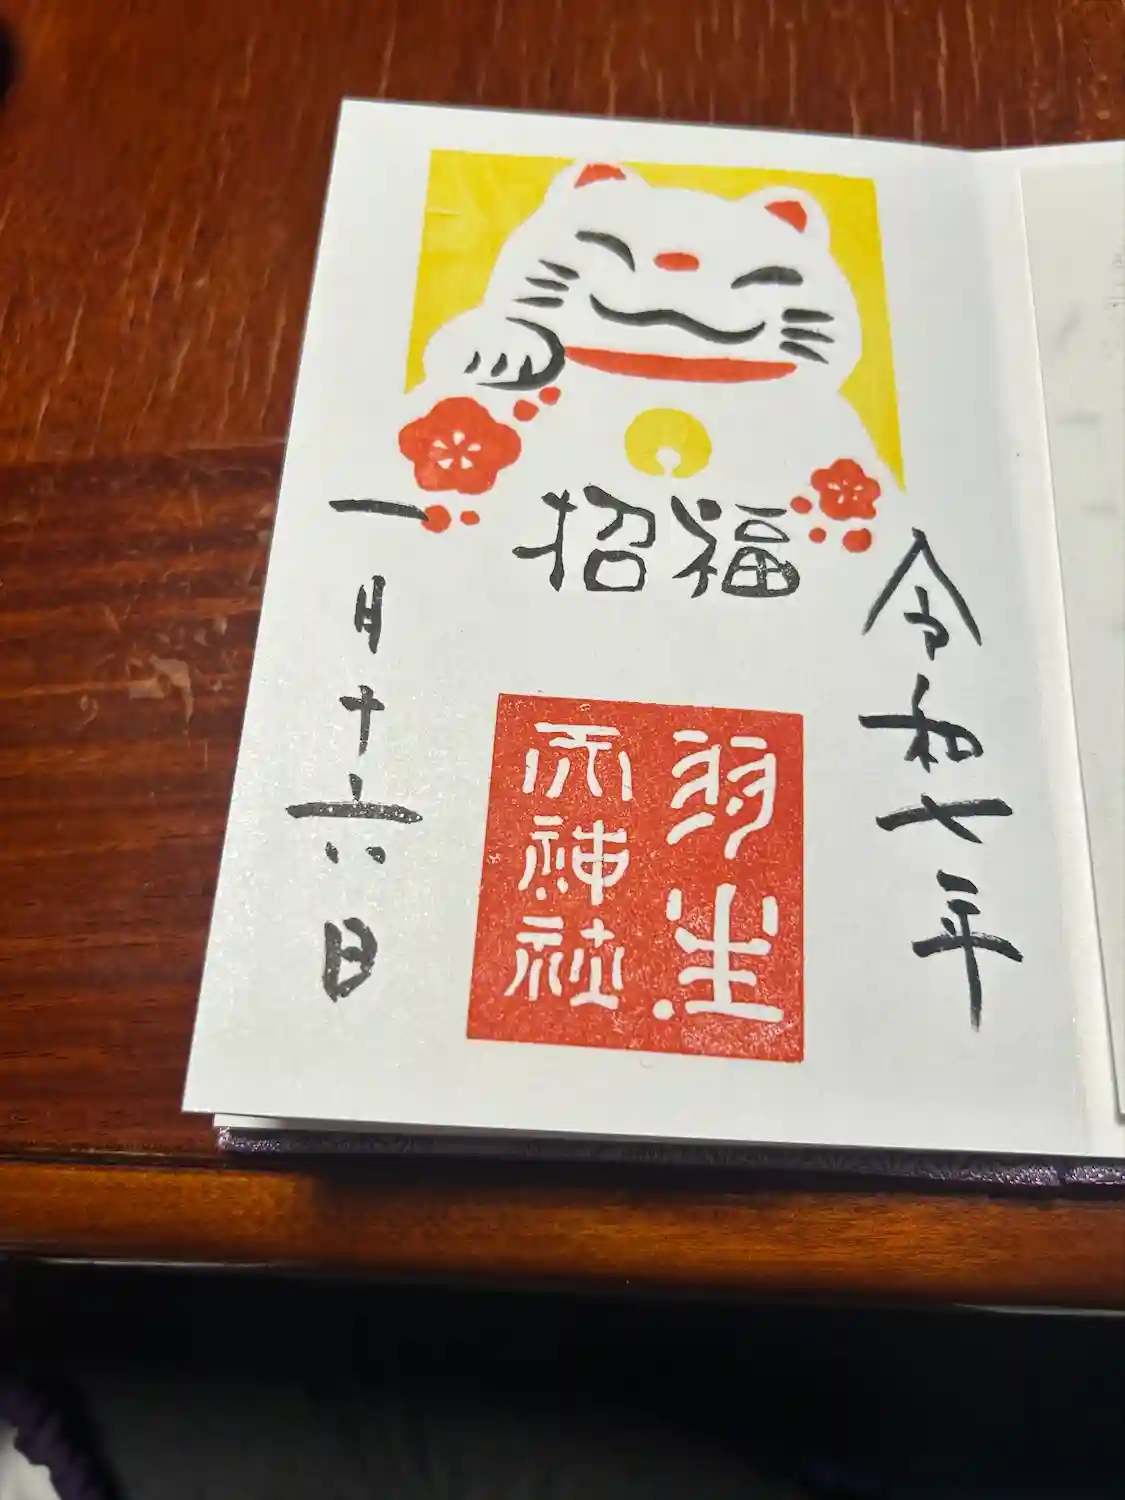 招福
令和七年
羽生
天神社
一月十六日